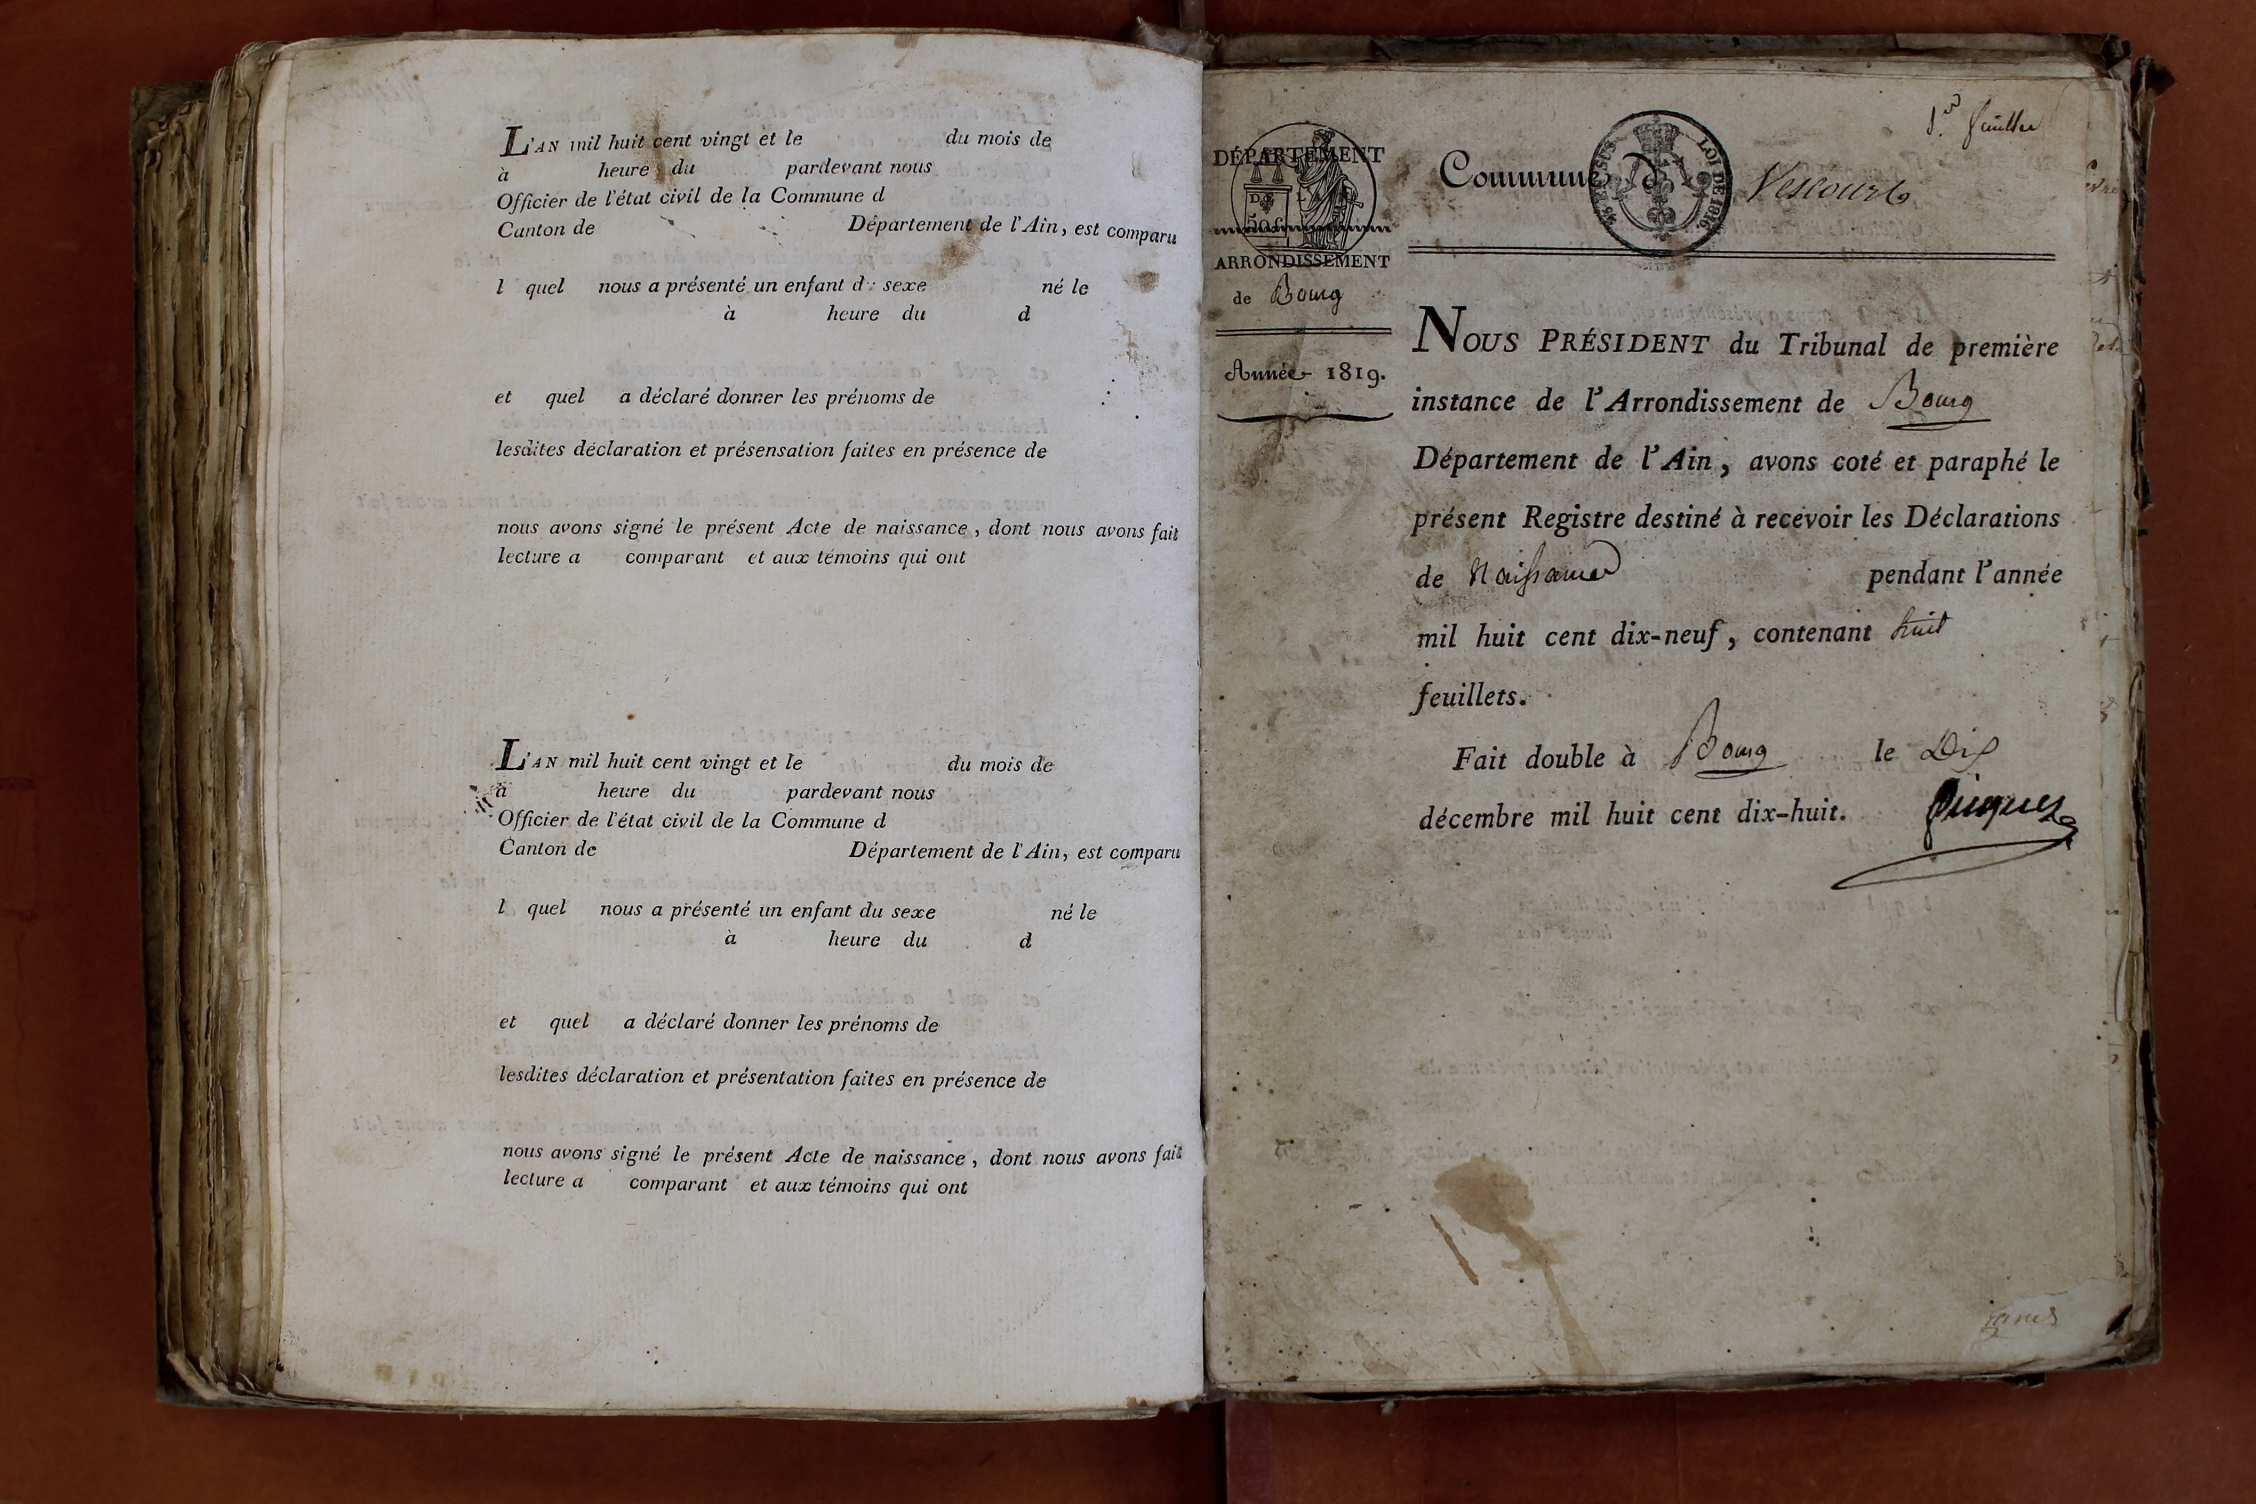 L'AN mil huit cent vingt et le du mois de
à heure du pardevant nous
Officier de l'état civil de la Commune d
Canton de Département de l'Ain, est comparu
l quel nous a présenté un enfant d sexe né le
à heure du d
et quel a déclaré donner les prénoms de
lesdites déclaration et présensation faites en présence de
nous avons signé le présent Acte de naissance, dont nous avons fait
lecture a comparant et aux témoins qui ont
L'AN mil huit cent vingt et le du mois de
à heure du pardevant nous
Officier de l'état civil de la Commune d
Canton de Département de l'Ain, est comparu
l quel nous a présenté un enfant du sexe né le
à heure du d
et quel a déclaré donner les prénoms de
lesdites déclaration et présentation faites en présence de
nous avons signé le présent Acte de naissance, dont nous avons fait
lecture a comparant et aux témoins qui ont
1er feuillet
DÉPARTEMENT
50 c.
ARRONDISSEMENT
de Bourg
Année 1819.
Commune d Vescours
LOI DE 1816.
NOUS PRÉSIDENT du Tribunal de première
instance de l'Arrondissement de Bourg
Département de l'Ain, avons coté et paraphé le
présent Registre destiné à recevoir les Déclarations
de Naissance pendant l'année
mil huit cent dix-neuf, contenant huit
feuillets.
Fait double à Bourg le Dix
décembre mil huit cent dix-huit.